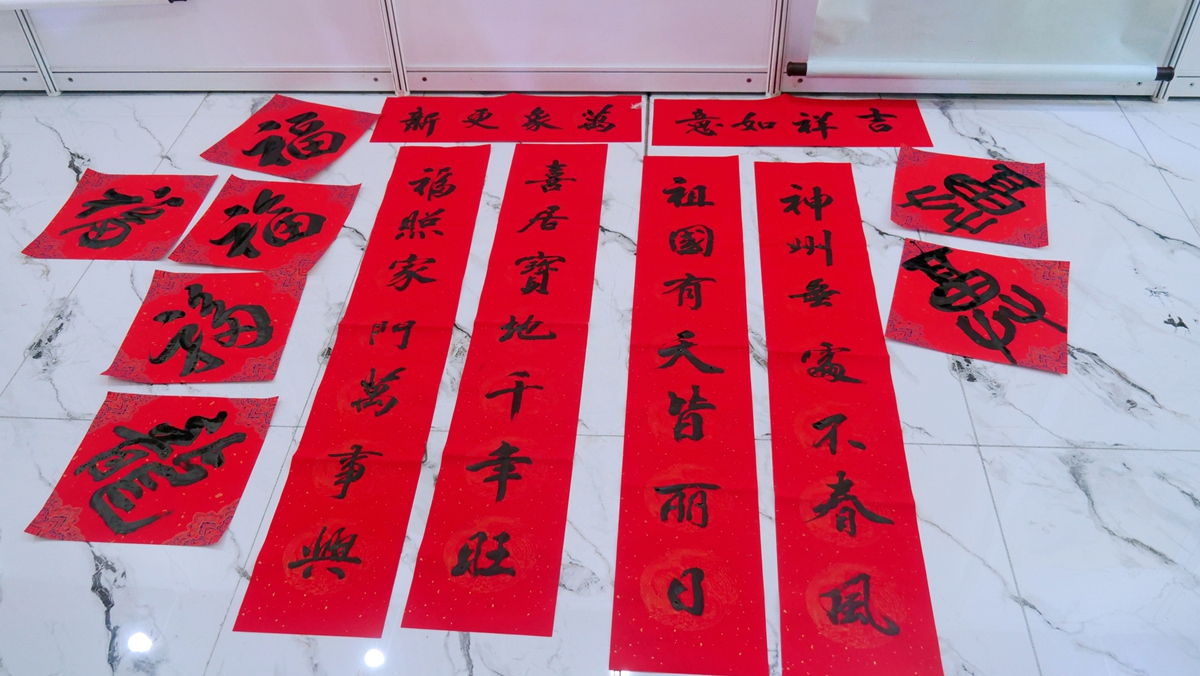 吉祥如意
神州無處不春風
祖國有天皆丽日
萬象更新
喜居寶地千年旺
福照家門萬事興
福
福
福
福
龍